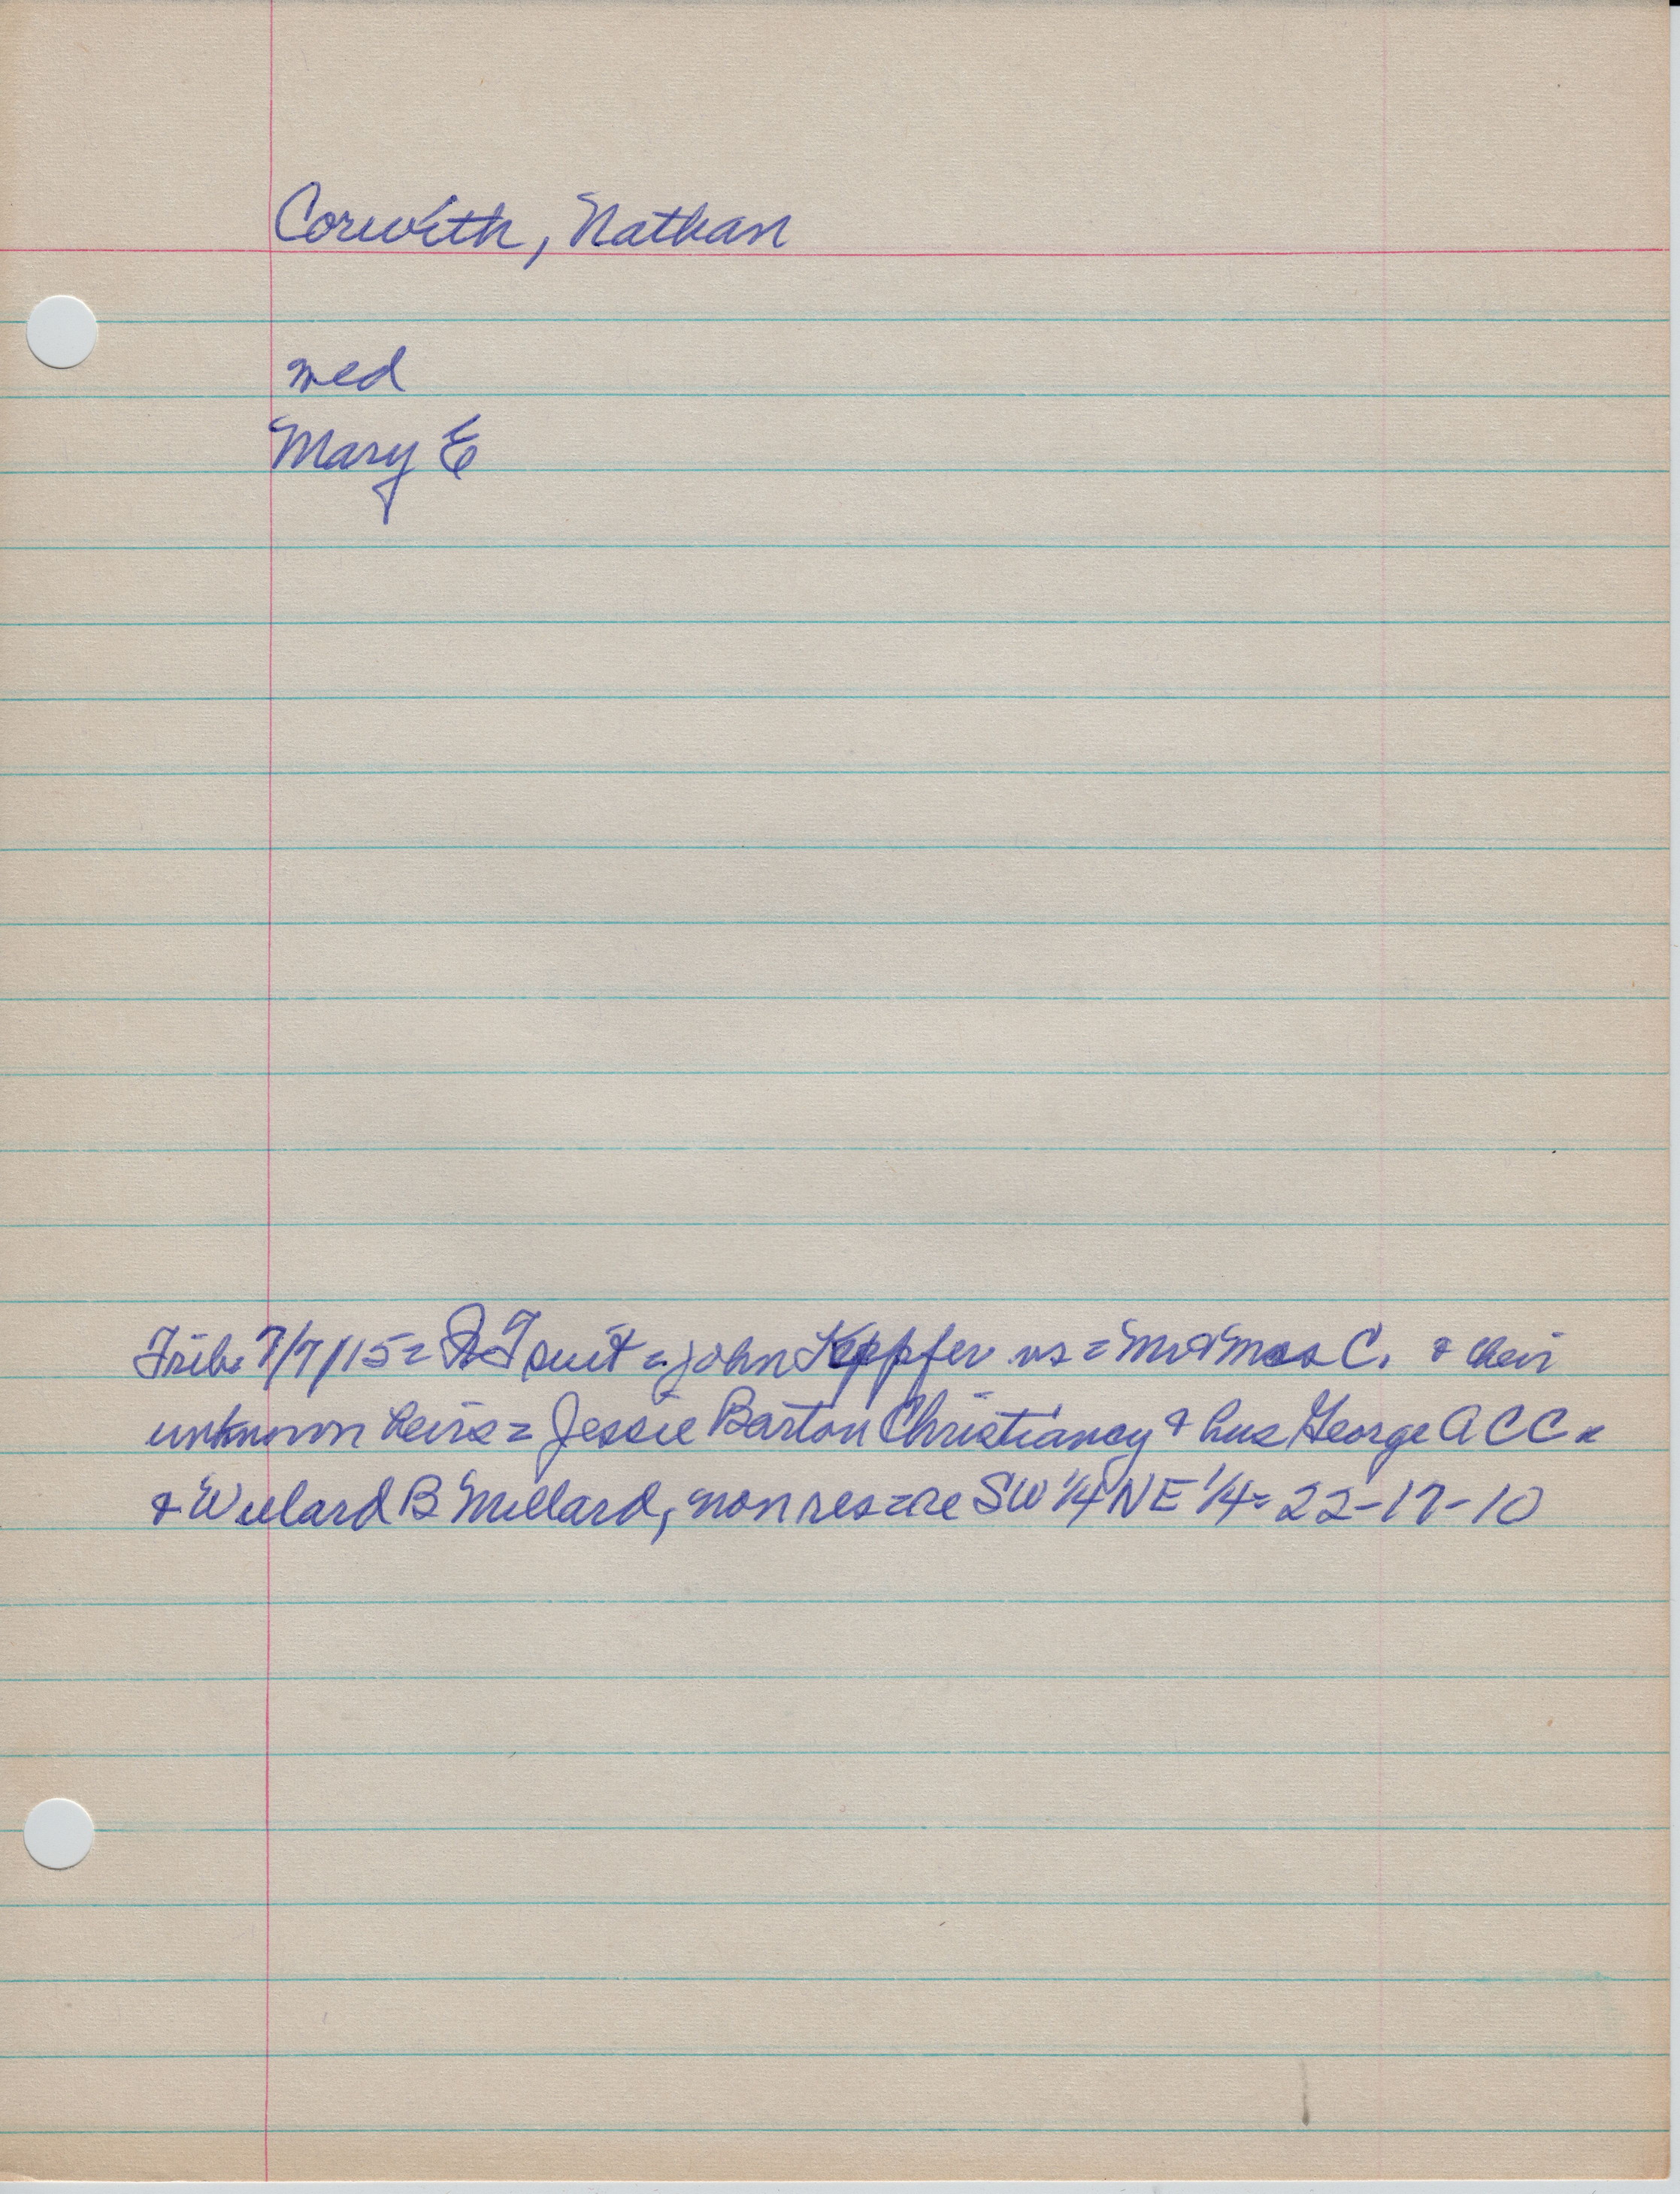 Corwith, Nathan
med
Mary E
Trib. 7/7/15 = QT suit = John Kepfer vs = Mr & Mrs C. & their
unknown heirs = Jessie Barton Christiancy & hus George A C C
& Willard B Millard, non res = re SW 1/4 NE 1/4 = 22-17-10